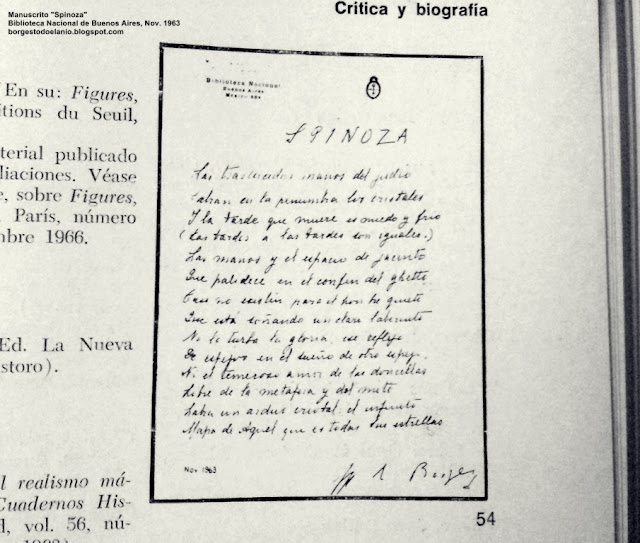 Manuscrito "Spinoza"
Biblioteca Nacional de Buenos Aires, Nov. 1963
borgestodoelanio.blogspot.com
Critica y biografía
En su: Figures,
itions du Seuil,
terial publicado
liaciones. Véase
e, sobre Figures,
París, número
mbre 1966.
Ed. La Nueva
storo).
l realismo má-
Cuadernos His-
l, vol. 56, nú-
Biblioteca Nacional
Buenos Aires
México 564
SPINOZA
Las traslucidas manos del judío
Labran en la penumbra los cristales
Y la tarde que muere es miedo y frío
(Las tardes a las tardes son iguales.)
Las manos y el espacio de jacinto
Que palidece en el confín del ghetto
Casi no existen para el hombre quieto
Que está soñando un claro laberinto
No lo turba la gloria, ese reflejo
De espejos en el sueño de otro espejo,
Ni el temeroso amor de las doncellas
Libre de la metáfora y del mito
Labra un arduo cristal: el infinito
Mapa de Aquel que es todas sus estrellas
Nov 1963
Borges
54